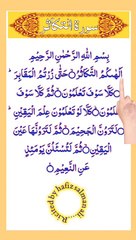 سورة التكاثر
بِسْمِ اللهِ الرَّحْمٰنِ الرَّحِيْمِ
اَلْهٰىكُمُ التَّكَاثُرُ ۝ حَتّٰى زُرْتُمُ الْمَقَابِرَ ۝
كَلَّا سَوْفَ تَعْلَمُوْنَ ۝ ثُمَّ كَلَّا سَوْفَ
تَعْلَمُوْنَ ۝ كَلَّا لَوْ تَعْلَمُوْنَ عِلْمَ الْيَقِيْنِ ۝
لَتَرَوُنَّ الْجَحِيْمَ ۝ ثُمَّ لَتَرَوُنَّهَا عَيْنَ
الْيَقِيْنِ ۝ ثُمَّ لَتُسْـَٔلُنَّ يَوْمَئِذٍ
عَنِ النَّعِيْمِ ۝